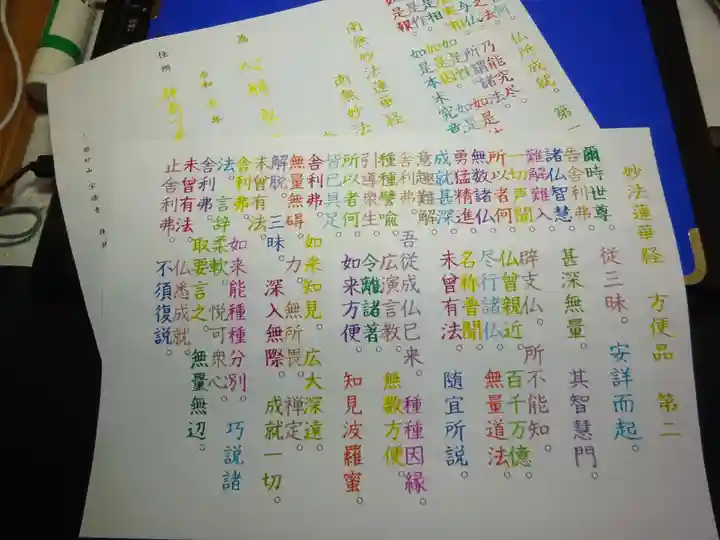 妙法蓮華経 方便品 第二
爾時世尊。 従三昧。 安詳而起。
告舎利弗。
諸仏智慧。 甚深無量。 其智慧門。
難解難入。
一切声聞。 辟支仏。 所不能知。
所以者何。 仏曾親近。 百千万億
無数諸仏。 尽行諸仏。 無量道法。
勇猛精進。 名称普聞。
成就甚深。 未曾有法。 随宜所説。
意趣難解。
舎利弗。 吾従成仏已来。 種種因縁。
種種譬喩。 広演言教。 無数方便。
引導衆生。 令離諸著。
所以者何。 如来方便。 知見波羅蜜。
皆已具足。
舎利弗。 如来知見。 広大深遠。
無量無碍。 力。 無所畏。 禅定。
解脱。 三昧。 深入無際。 成就一切。
未曾有法。
舎利弗。 如来能種種分別。 巧説諸
法。 言辞柔軟。 悦可衆心。
舎利弗。 取要言之。 無量無辺。
未曾有法。 仏悉成就。
止舎利弗。 不須復説。
仏所成就。 第一
乃能究尽
南無妙法蓮華経
南無妙法
為 心願
令和 年
住所